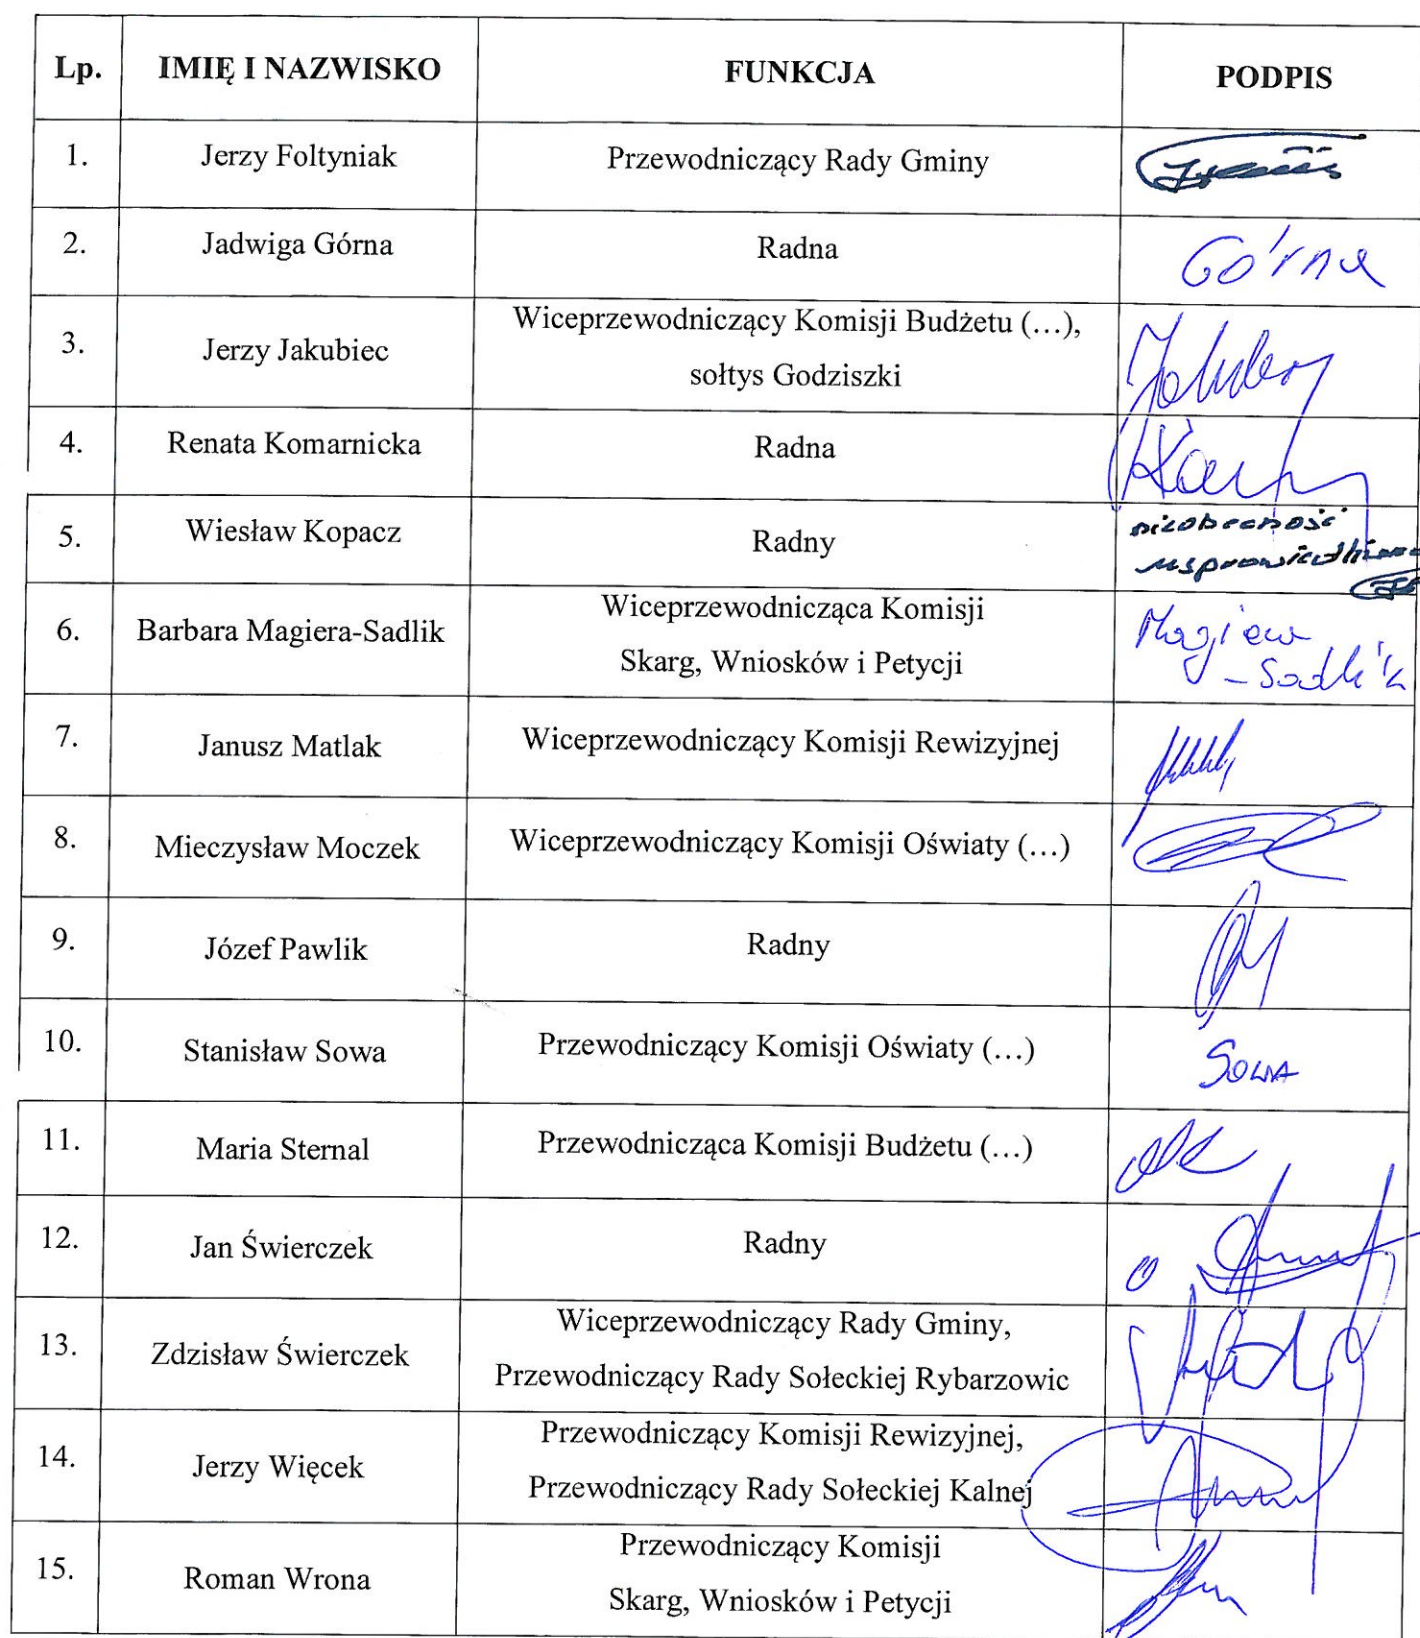 Lp. IMIĘ I NAZWISKO FUNKCJA PODPIS
1. Jerzy Foltyniak Przewodniczący Rady Gminy
2. Jadwiga Górna Radna Górna
3. Jerzy Jakubiec Wiceprzewodniczący Komisji Budżetu (…),
sołtys Godziszki
4. Renata Komarnicka Radna
5. Wiesław Kopacz Radny nieobecność
usprawiedliwiona
6. Barbara Magiera-Sadlik Wiceprzewodnicząca Komisji Magiera
Skarg, Wniosków i Petycji - Sadlik
7. Janusz Matlak Wiceprzewodniczący Komisji Rewizyjnej
8. Mieczysław Moczek Wiceprzewodniczący Komisji Oświaty (…)
9. Józef Pawlik Radny
10. Stanisław Sowa Przewodniczący Komisji Oświaty (…) SOWA
11. Maria Sternal Przewodnicząca Komisji Budżetu (…)
12. Jan Świerczek Radny
13. Zdzisław Świerczek Wiceprzewodniczący Rady Gminy,
Przewodniczący Rady Sołeckiej Rybarzowic
14. Jerzy Więcek Przewodniczący Komisji Rewizyjnej,
Przewodniczący Rady Sołeckiej Kalnej
15. Roman Wrona Przewodniczący Komisji
Skarg, Wniosków i Petycji